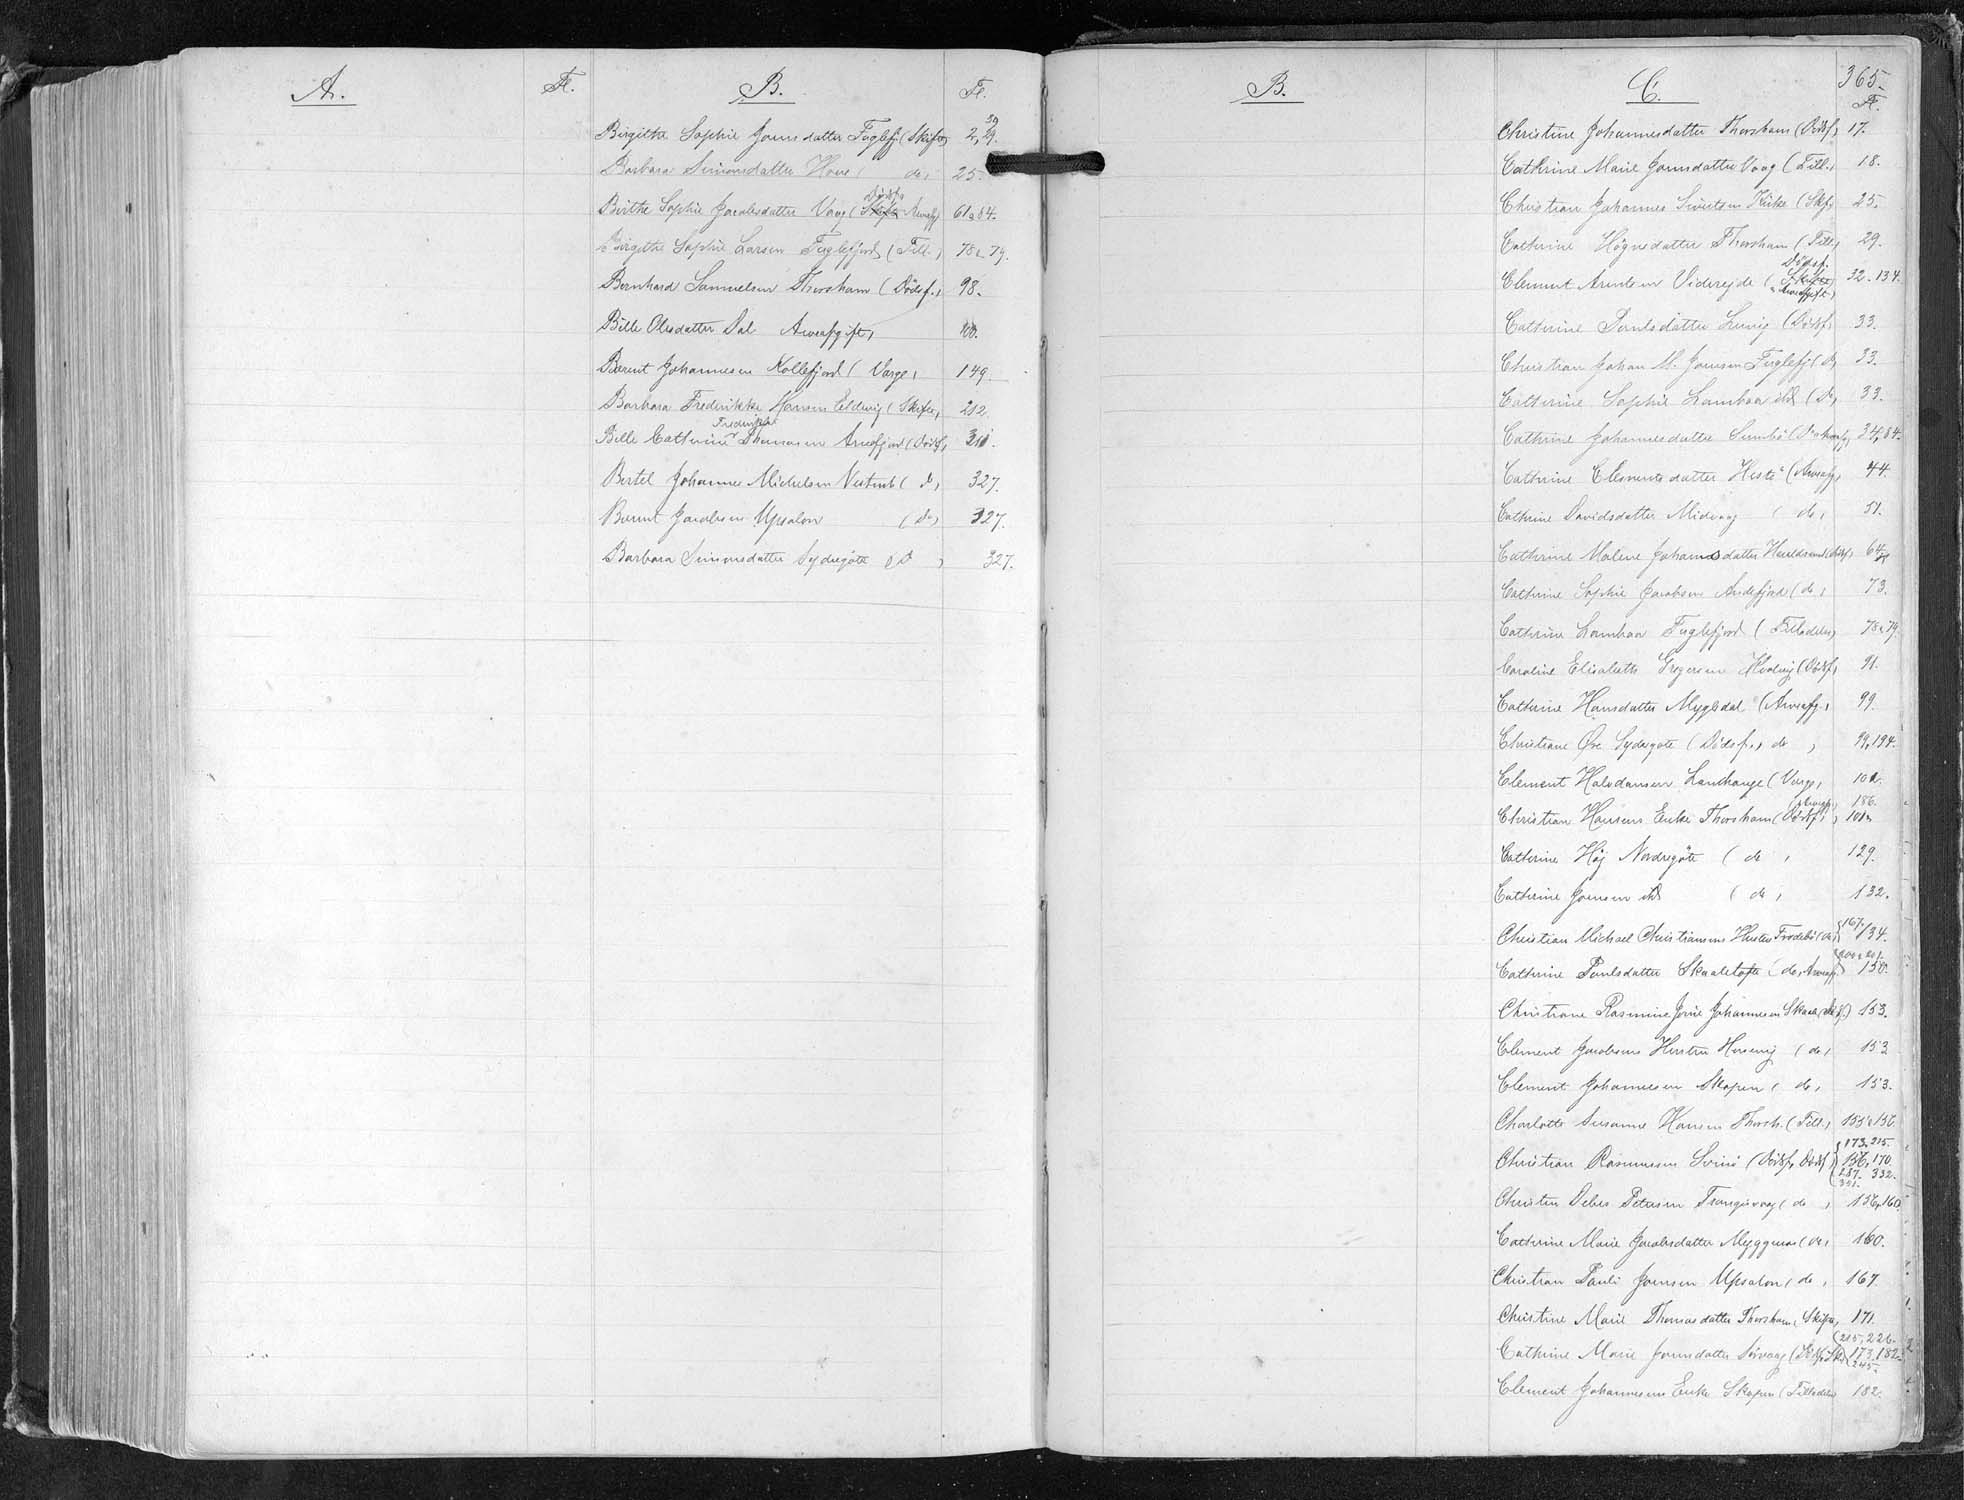 A.
Fl.
B.
Fl.
Birgithe Sophie Joensdatter Fuglefj (Skifte) 2, 29. 39
Barbara Simonsdatter Hove ( do, 25.
Birthe Sophie Jacobsdatter Vaag (Skifte Dødsf. Arveafg) 61 & 84.
Birgithe Sophie Larsen Fuglefjord (Till.) 78 & 79.
Bernhard Samuelsen Thorshavn (Dødsf., 98.
Bille Olesdatter Dal Arveafgift, 100.
Berent Johannesen Kollefjord (Værge, 149.
Barbara Frederikke Hansen Eldevig (Skifte, 212.
Bille Cathrine Frederikke Thomasen Arnefjord (Dødsf, 311.
Bertel Johannes Michelsen Vestmh ( do, 327.
Berent Jacobsen Upsalon (do) 327.
Barbara Simonsdatter Sydregøte ( do ) 327.
B.
C.
365.
Fl.
Christine Johannesdatter Thorshavn (Dødsf, 17.
Cathrine Marie Joensdatter Vaag (Till., 18.
Christian Johannes Sivertsen (Skf, 25.
Cathrine Høgnesdatter Thorshavn (Till, 29.
Clement Arentsen Viderejde (Skifte Dødsf. & Arveafgift) 32. 134.
Cathrine Poulsdatter (Dødsf, 33.
Christian Johan M. Joensen Fuglefj ( do, 33.
Cathrine Sophie Lamhau ibd (do, 33.
Cathrine Johannesdatter Sumbø (Do & Arveafg, 34, 84.
Cathrine Clementsdatter Hestø (Arveafg, 44.
Cathrine Davidsdatter Midvaag ( do, 51.
Cathrine Malene Johansdatter Haraldssund (Dødsf, 64
Cathrine Sophie Jacobsen Andefjord ( do, 73.
Cathrine Lamhau Fuglefjord ( Tilladelse, 78 & 79
Caroline Elisabeth Gregersen Kvalvig (Dødsf, 91.
Cathrine Hansdatter Mygledal (Arveafg., 99.
Christiane Øre Sydregøte (Dødsf., do ) 99, 194.
Clement Halvdansen Lamhauge (Værge, 102.
Christian Hansens Enke Thorshavn (Dødsf, 186. 101
Cathrine Høj Nordregøte ( do , 129.
Cathrine Joensen ibd ( do , 132.
Christian Michael Christiansens Hustru Frodebø (do) 167. 134.
Cathrine Poulsdatter Skaaletofte ( do, Arveafg. 200 & 201. 150.
Christiane Rasmine Johannesen Skaale (Dødsf) 153.
Clement Jacobsens Hustru Husevig ( do, 153
Clement Johannesen Skopen ( do, 153.
Charlotte Susanne Hansen Thorsh. (Till., 155 & 156
Christian Rasmussen Svinø (Dødsf, Dødsf) 173, 215. 156, 170. 287. 332. 331.
Christen Debes Petersen Trangisvaag ( do , 156, 160.
Cathrine Marie Jacobsdatter Myggenæs (do, 160.
Christian Pauli Joensen Upsalon ( do , 167.
Christine Marie Thomasdatter Thorshavn, Skifte, 171.
Cathrine Marie Joensdatter Sørvaag (Dødsf, Sk) 215, 226. 173. 182. 245.
Clement Johannesens Enke Skopen (Tilladelse 182.